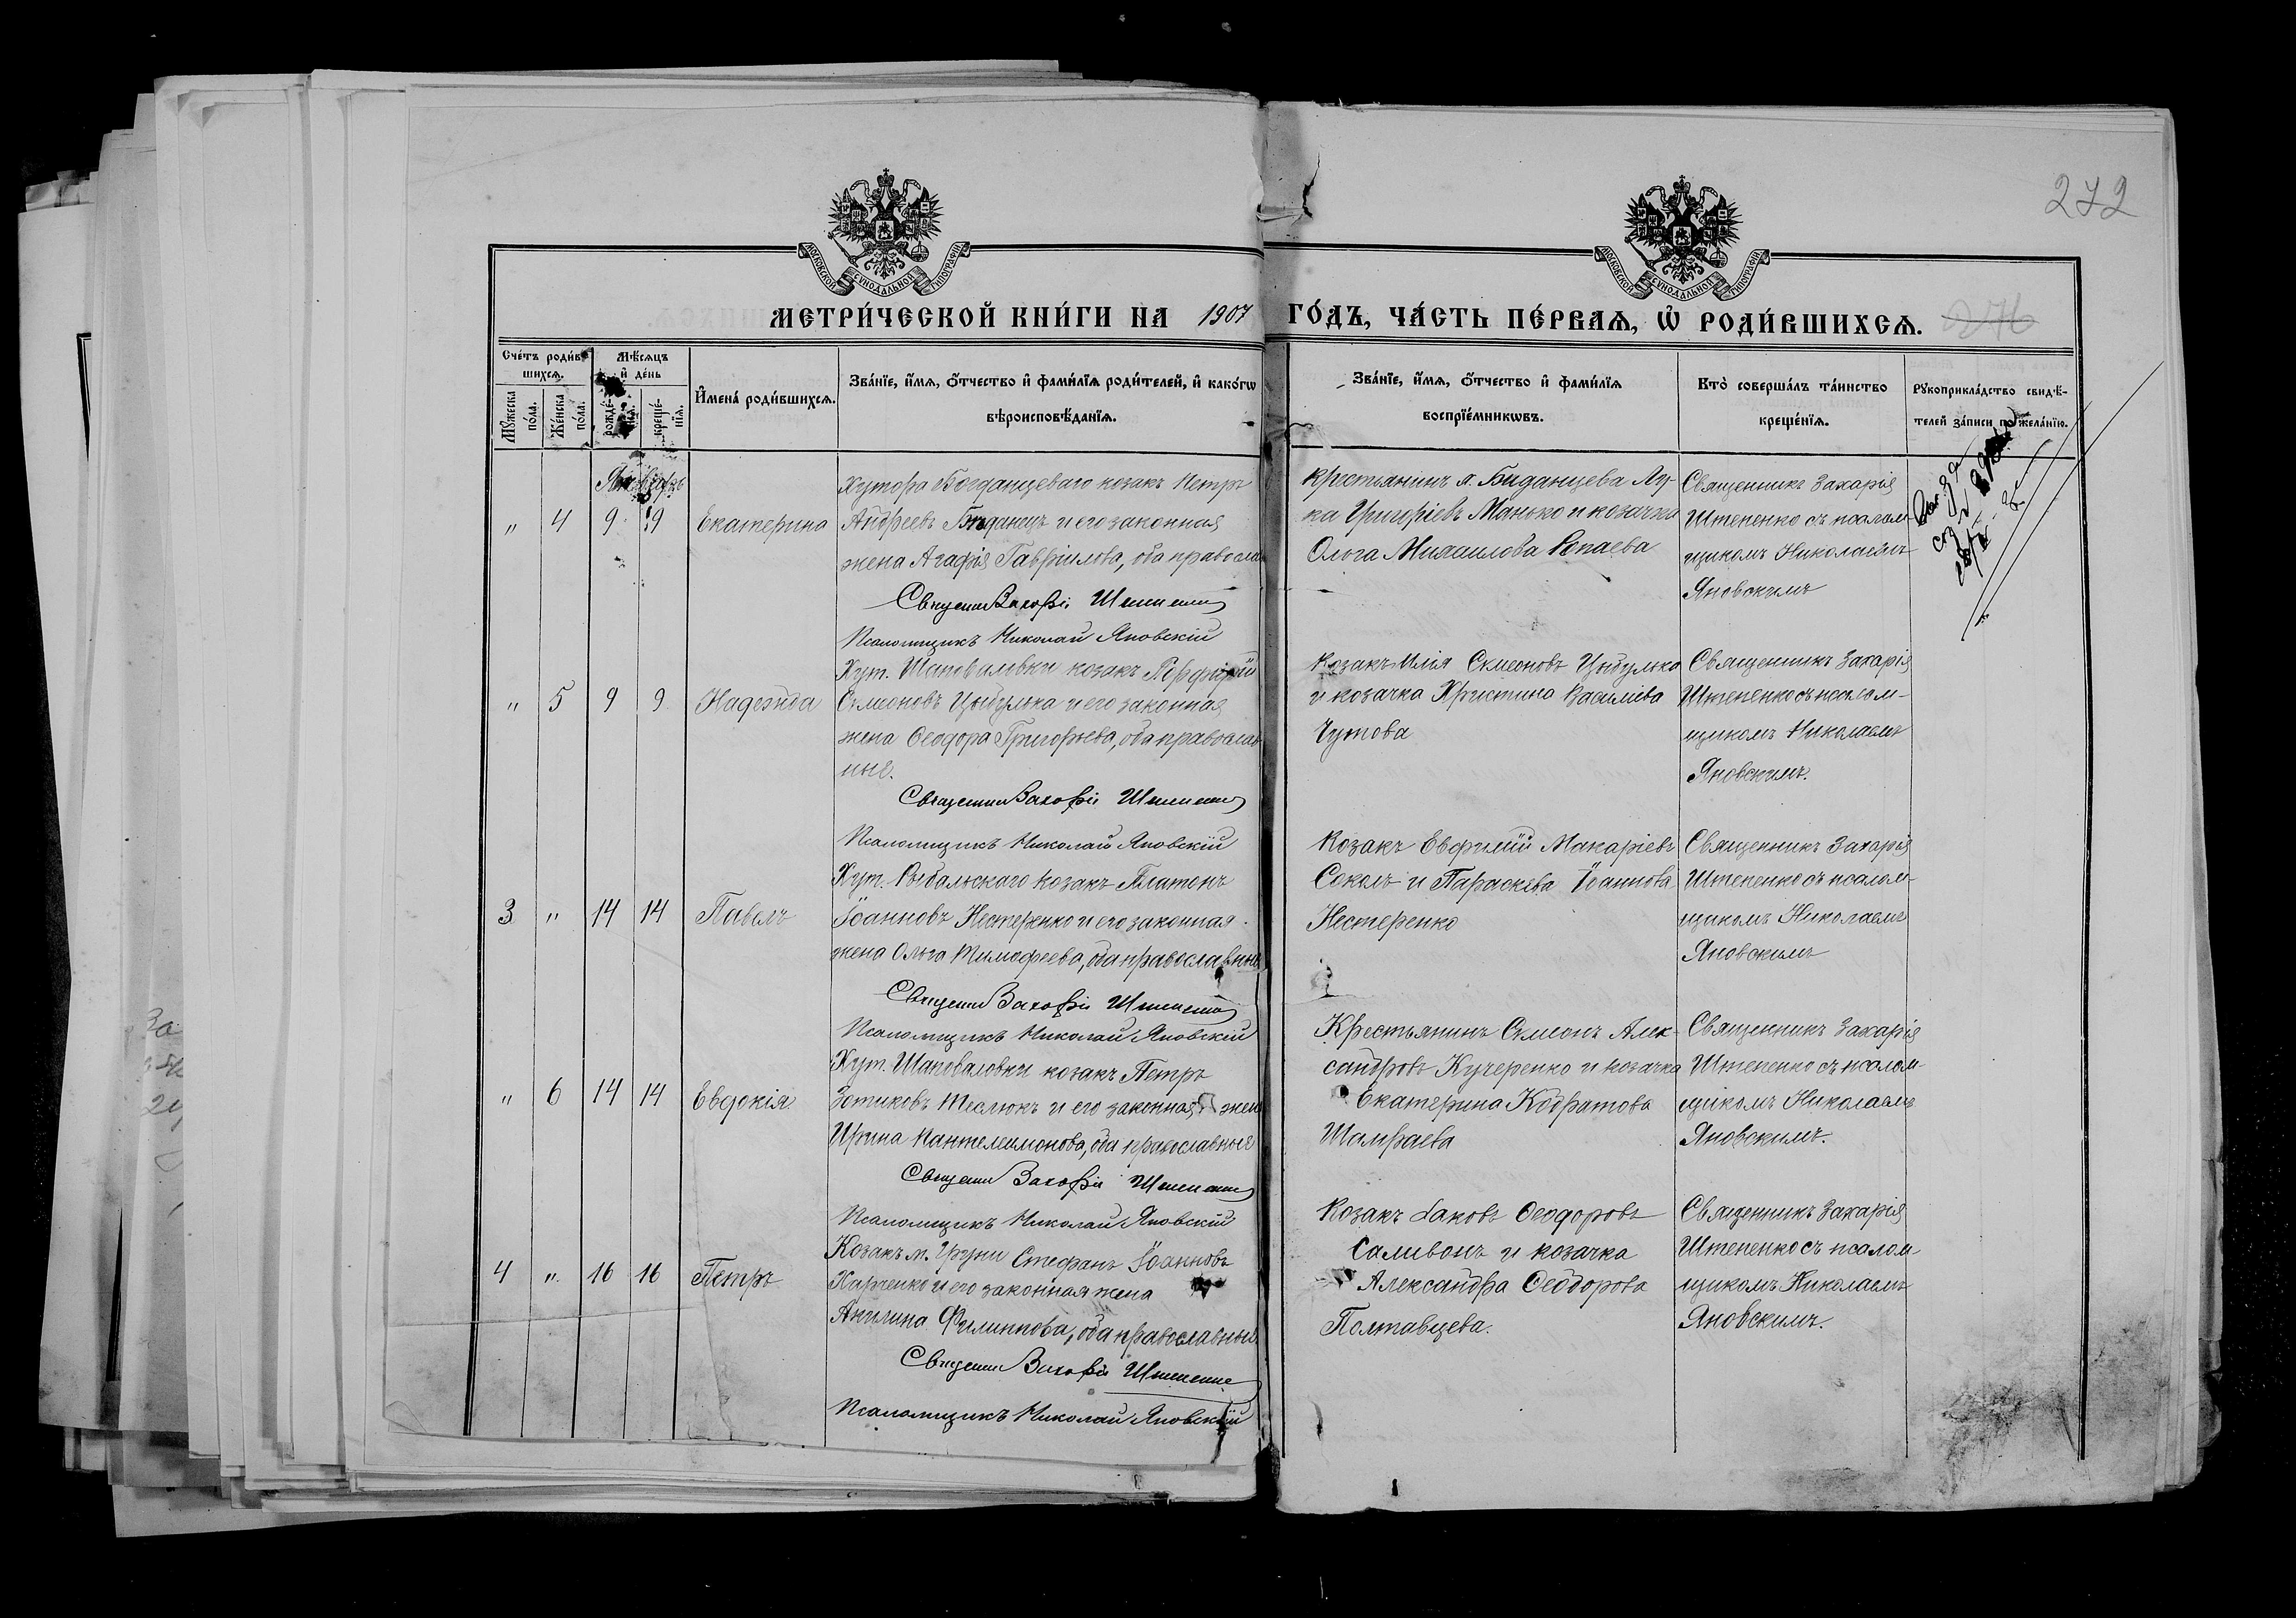 272
МОСКОВСКОЙ СѴНОДАЛЬНОЙ ТИПОГРАФІИ
МОСКОВСКОЙ СѴНОДАЛЬНОЙ ТИПОГРАФІИ
МЕТРИ́ЧЕСКОЙ КНИ́ГИ НА 1907 ГО́ДЪ, ЧА́СТЬ ПЕ́РВАѦ, Ѡ҆ РОДИ́ВШИХСѦ. 276
Сче́тъ роди́в-
шихсѧ.
Мꙋ́жеска по́ла.
Же́нска по́ла.
Мѣ́сѧцъ
и҆ де́нь
рожде́-нїѧ.
креще́-нїѧ.
И҆мена̀ роди́вшихсѧ.
Зва́нїе, и҆́мѧ, ѻ҆́тчество и҆ фами́лїѧ роди́телей, и҆ како́гѡ
вѣроисповѣ́данїѧ.
Зва́нїе, и҆́мѧ, ѻ҆́тчество и҆ фами́лїѧ
воспрїе́мникѡвъ.
Кто̀ соверша́лъ та́инство
креще́нїѧ.
Рꙋкоприкла́дство свидѣ́-
телей за́писи по жела́нїю.
Январь
" 4 9 9 Екатерина
Хутора Богданцеваго козакъ Петръ
Андреевъ Биданецъ и его законная
жена Агафія Гавріилова, оба правосла
Священникъ Захарій Штепенко
Псаломщикъ Николай Яновскій
крестьянинъ х. Биданцева Лу-
ка Григоріевъ Манько и козачка
Ольга Михаилова Ропаева
Священникъ Захарія
Штепенко съ псалом-
щикомъ Николаемъ
Яновскимъ
" 5 9 9 Надежда
Хут. Шаповаловки козакъ Порфирій
Симеоновъ Цыбулька и его законная
жена Ѳеодора Григорьева, оба православ
ные.
Священникъ Захарій Штепенко
Псаломщикъ Николай Яновскій
Козакъ Илія Симеоновъ Цыбулька
и козачка Христина Василіева
Чутова
Священникъ Захарія
Штепенко съ псалом-
щикомъ Николаемъ
Яновскимъ.
3 " 14 14 Павелъ
Хут. Рыбальскаго козакъ Платонъ
Іоанновъ Нестеренко и его законная
жена Ольга Тимофеева, оба православные
Священникъ Захарій Штепенко
Псаломщикъ Николай Яновскій
Козакъ Евфимій Макаріевъ
Соколъ и Параскева Іоаннова
Нестеренко
Священникъ Захарія
Штепенко съ псалом-
щикомъ Николаемъ
Яновскимъ
" 6 14 14 Евдокія
Хут. Шаповаловки козакъ Петръ
Зотиковъ Теслюкъ и его законная жен
Ирина Пантелеимонова, оба православные
Священникъ Захарій Штепенко
Псаломщикъ Николай Яновскій
Крестьянинъ Симеонъ Алек-
сандровъ Кучеренко и козачка
Екатерина Кодратова
Шамраева
Священникъ Захарія
Штепенко съ псалом-
щикомъ Николаемъ
Яновскимъ.
4 " 16 16 Петръ
Козакъ м. Груни Стефанъ Іоанновъ
Харченко и его законная жена
Акилина Филиппова, оба православные
Священникъ Захарій Штепенко
Псаломщикъ Николай Яновскій
Козакъ Іаковъ Ѳеодоровъ
Саливонъ и козачка
Александра Ѳеодорова
Полтавцева.
Священникъ Захарія
Штепенко съ псалом-
щикомъ Николаемъ
Яновскимъ.